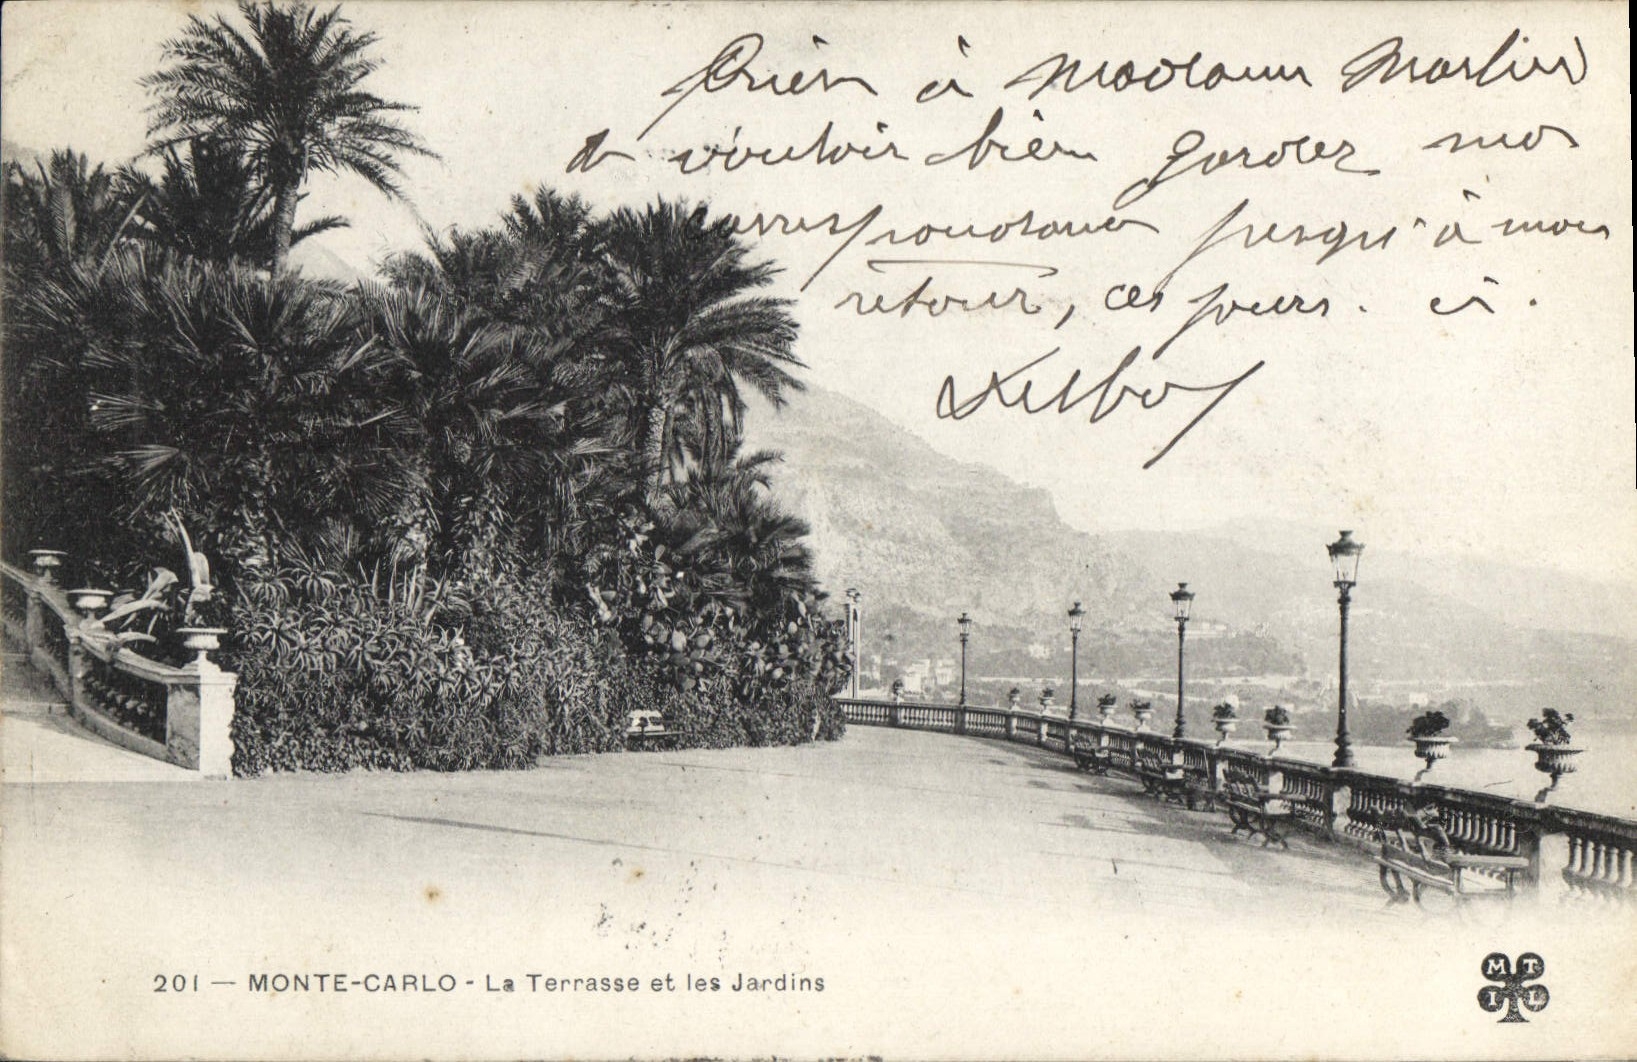 Prière à Madame Martin
de vouloir bien garder ma
correspondance jusqu'à mon
retour, ces jours. ci.
201 — MONTE-CARLO - La Terrasse et les Jardins
M T
I L